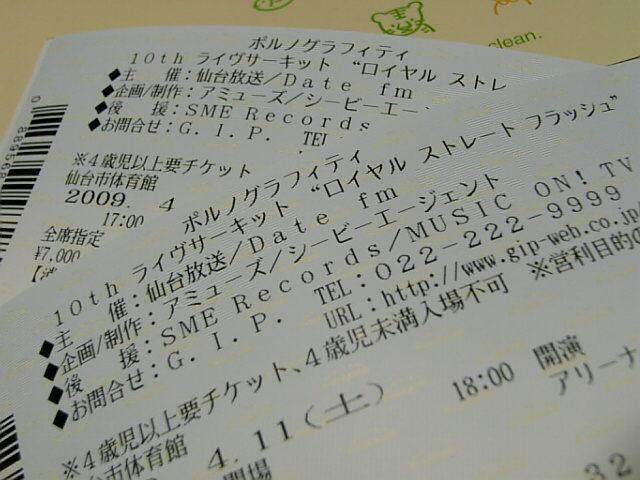 clean.
ポルノグラフィティ
10th ライヴサーキット “ロイヤル ストレ
◆主 催：仙台放送/Date fm
◆企画/制作：アミューズ/シービーエー
◆後 援：SME Records
◆お問合せ：G.I.P. TEL
※4歳児以上要チケット
仙台市体育館
2009. 4
17:00
全席指定
¥7,000
ポルノグラフィティ
10th ライヴサーキット “ロイヤル ストレート フラッシュ”
◆主 催：仙台放送/Date fm
◆企画/制作：アミューズ/シービーエージェント
◆後 援：SME Records/MUSIC ON! TV
◆お問合せ：G.I.P. TEL：022-222-9999
URL：http://www.gip-web.co.jp/
※4歳児以上要チケット、4歳児未満入場不可 ※営利目的の
台市体育館
4.11(土) 18:00 開演
開場 アリーナ
32